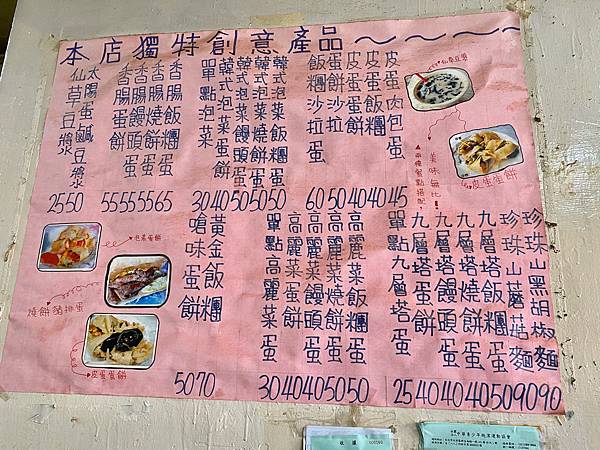 本店獨特創意產品～～～～
仙草豆漿
太腸蛋鹹豆漿
香腸蛋餅
香腸饅頭蛋
香腸燒餅蛋
香腸飯糰蛋
單點泡菜
韓式泡菜蛋餅
韓式泡菜饅頭蛋
韓式泡菜燒餅蛋
韓式泡菜飯糰蛋
飯糰沙拉
蛋餅沙拉
皮蛋蛋餅
皮蛋飯糰
皮蛋肉包蛋
25 50 55 55 55 65 30 40 50 50 50 60 50 40 40 45
仙草豆漿
美味無比!
皮蛋蛋餅
泡菜蛋餅
燒餅豬排蛋
皮蛋蛋餅
嗆味蛋餅
黃金飯糰
單點高麗菜
高麗菜蛋餅
高麗菜饅頭蛋
高麗菜燒餅蛋
高麗菜飯糰蛋
單點九層塔蛋
九層塔蛋餅
九層塔饅頭蛋
九層塔燒餅蛋
九層塔飯糰蛋
珍珠山蘑菇麵
珍珠山黑胡椒麵
50 70 30 40 40 50 50 25 40 40 40 50 90 90
收據